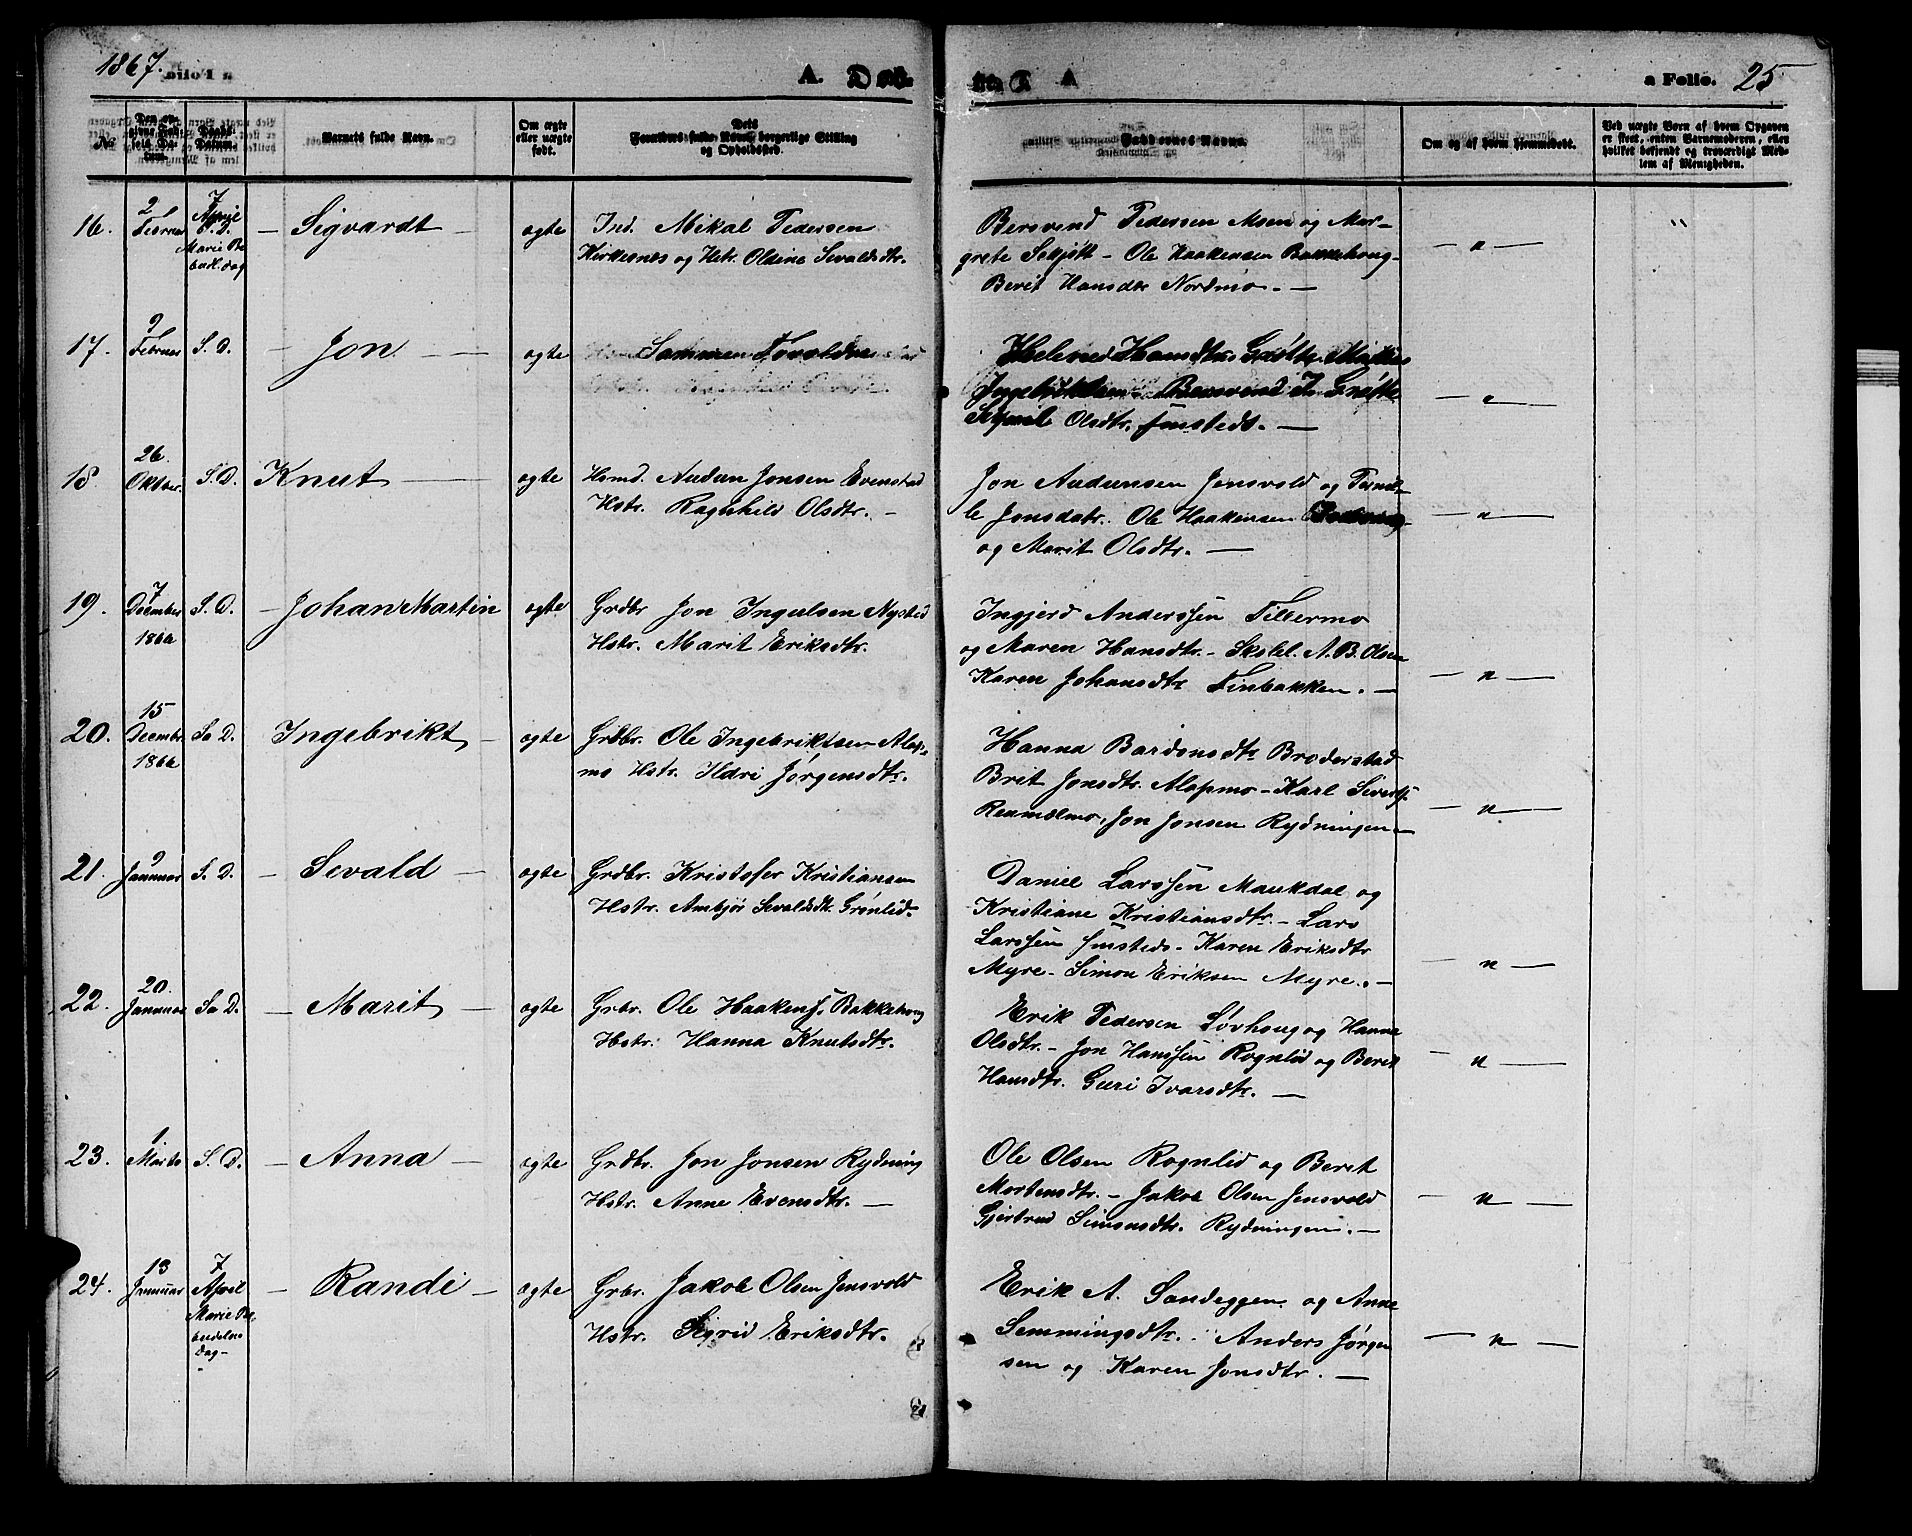 1867.
A. Døb
a Folio. 25
No
Den opgivne Fødsels Datum.
Daabs Datum.
Barnets fulde Navn.
Om ægte eller uægte født.
Dets Forældres fulde Navne borgerlige Stilling og Opholdssted.
Faddernes Navne.
Om og af hvem hjemmedøbt.
Ved uægte Børn af hvem Opgaven er skeet, enten Barnemoderen, eller hvilket bekjendt og troværdigt Medlem af Menigheden.
16. 2 Februar 7 April Marie Bebud. dag — Sigvardt — ægte
Ind. Mikal Pedersen
Kirkesnes og Hstr. Oldine Sevaldsdtr.
Bersvend Pedersen Moen og Mar-
grete – Ole Haakensen Bakkehoug
Berit Hansdtr Nordmo. —
— " —
17. 9 Februar S. D. — Jon — ægte
Hansdtr
Olsdtr. Fmsteds. —
18 26. Oktober. S. D. Knut — ægte
Hsmd. Audun Jonsen Evenstad
Hstr. Ragnhild Olsdtr. —
Jon Audunsen Jensvold og Pernil-
le Jonsdatr. Ole Haakensen
og Marit Olsdtr. —
— " —
19. 7 December 1866 S. D. — Johan Martin ægte
Grdbr Jon Ingulsen Nysted
Hstr. Marit Eriksdtr.
Ingjerd Anderssen Tillermo
og Maren Hansdtr. – Skolel. A. B. Olsen
Karen Johansdtr Finbakken. —
— " —
20. 15 Decembr 1866 Sa D. Ingebrikt — ægte
Grdbr. Ole Ingebriktsen Alap-
mo Hstr. Ildri Jørgensdtr.
Hanna Bardonsdtr Broderstad
Brit Jonsdtr. Alapmo – Karl Siverts.
Jon Jonsen Rydningen –
— " —
21. 9 Januar S. D. — Sevald — ægte
Grdbr. Kristofer Kristiansen
Hstr. Ambjør Sevaldsdtr. Grønlid.
Daniel Larssen Maukdal og
Kristiane Kristiansdtr. – Lars
Larssen Fmsteds – Karen Eriksdtr
Myre – Simon Eriksen Myre. –
— " —
22. 20. Januar Sa D. — Marit — ægte
Grbr. Ole Haakens. Bakkehoug
Hstr. Hanna Knutsdtr.
Erik Pedersen Løvhoug og Hanna
Olsdtr. – Jon Hanssen Rognlid og Beret
Hansdtr. Guri Ivarsdtr. —
— " —
23. 1 Marts S. D. — Anna — ægte
Grdbr. Jon Jonsen Rydning
Hstr. Anne Evensdtr. —
Ole Olsen Rognlid og Beret
Mortensdtr. – Jakob Olsen Jensvold
Gjertrud Simonsdtr. Rydningen. —
— " —
24. 13 Januar 7 April Marie Bebudelses Dag — Randi — ægte
Grbr. Jakob Olsen Jensvold
Hstr. Sigrid Eriksdtr.
Erik A. Sandeggen og Anne
Semmingsdtr. Anders Jørgen
sen og Karen Jonsdtr. —
— " —